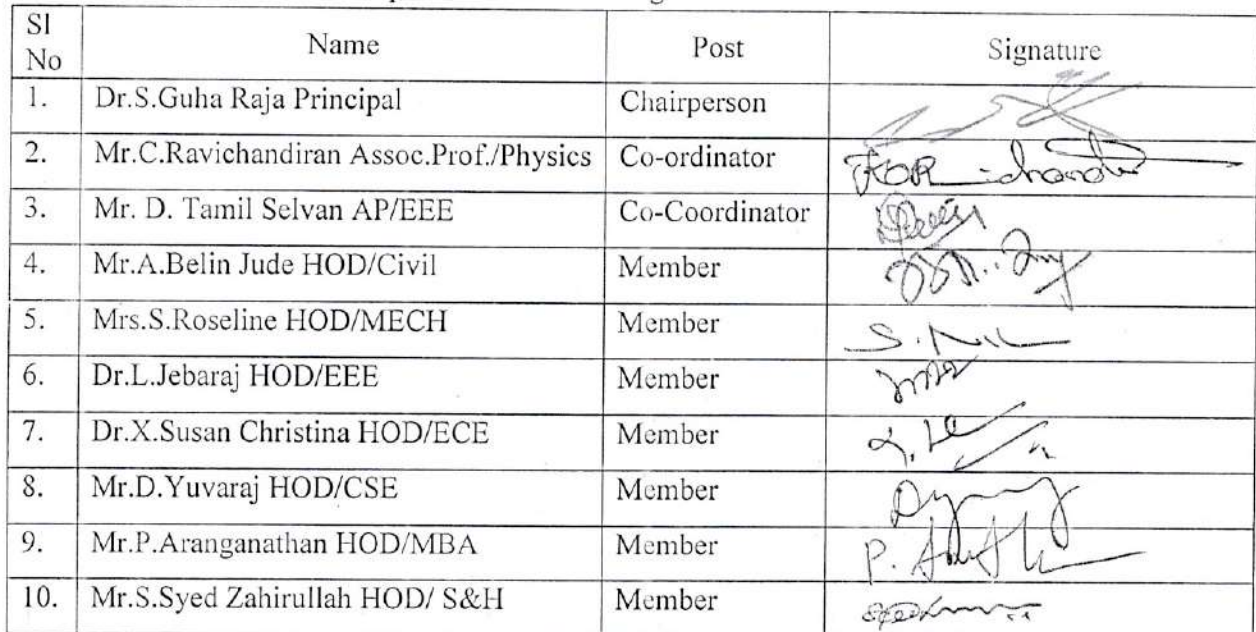 Sl No Name Post Signature
1. Dr.S.Guha Raja Principal Chairperson
2. Mr.C.Ravichandiran Assoc.Prof./Physics Co-ordinator
3. Mr. D. Tamil Selvan AP/EEE Co-Coordinator
4. Mr.A.Belin Jude HOD/Civil Member
5. Mrs.S.Roseline HOD/MECH Member
6. Dr.L.Jebaraj HOD/EEE Member
7. Dr.X.Susan Christina HOD/ECE Member
8. Mr.D.Yuvaraj HOD/CSE Member
9. Mr.P.Aranganathan HOD/MBA Member
10. Mr.S.Syed Zahirullah HOD/ S&H Member